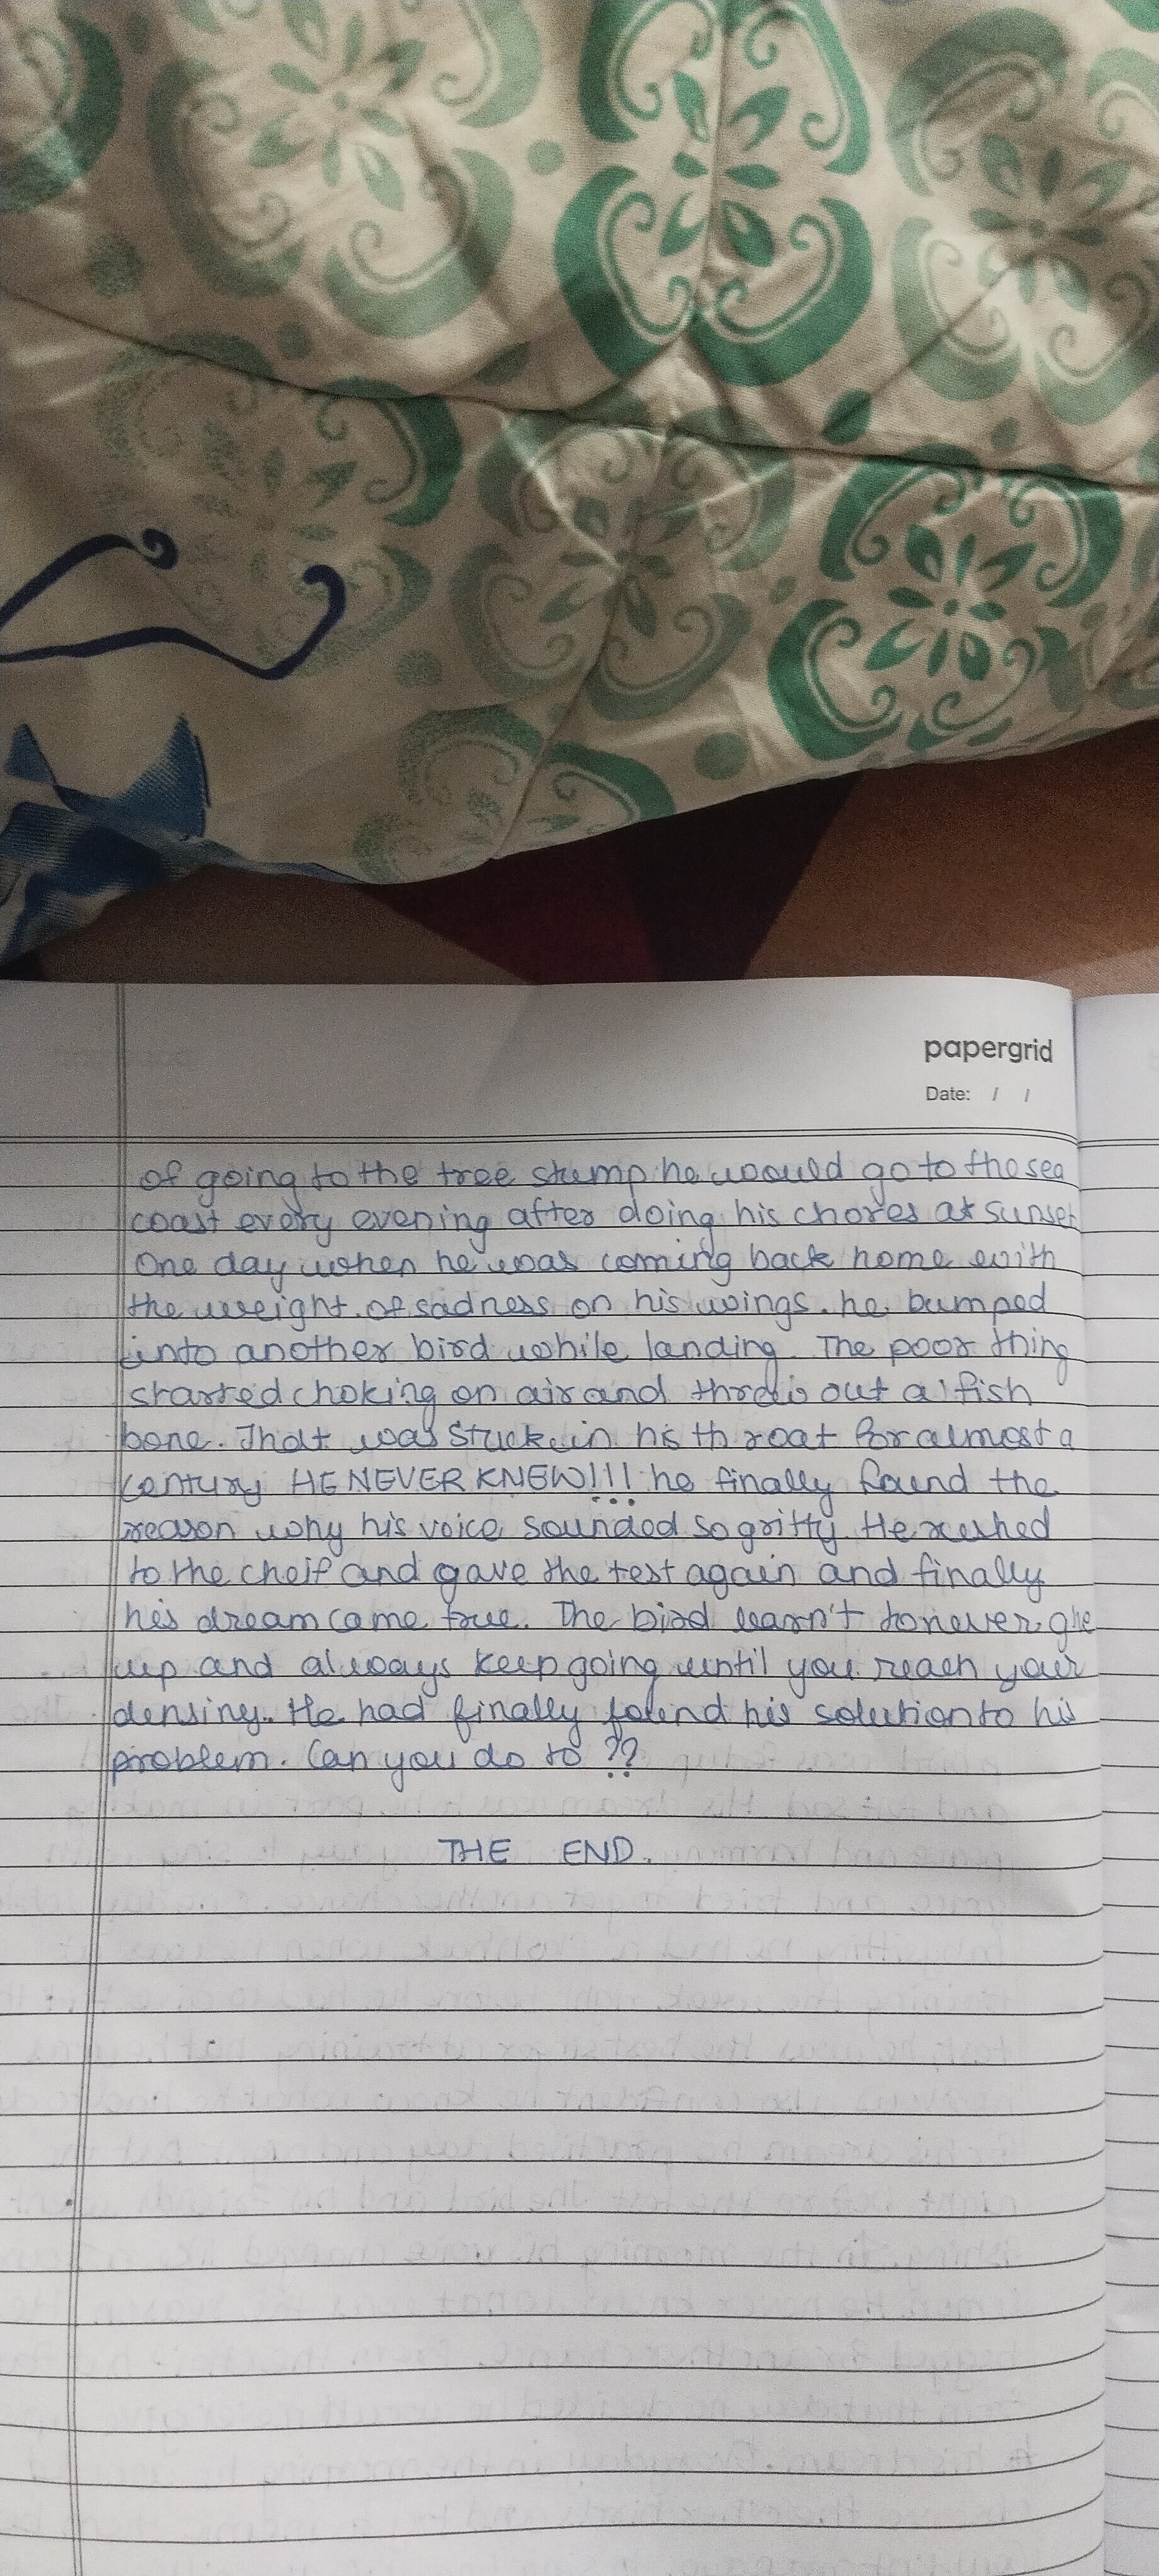 papergrid
Date: / /
of going to the tree stump he would go to the sea
coast every evening after doing his chores at sunset
One day when he was coming back home with
the weight of sadness on his wings. he bumped
into another bird while landing. The poor thing
started choking on air and threw out a fish
bone. That was stuck in his throat for almost a
century HE NEVER KNEW!!! he finally found the
reason why his voice sounded so gritty. He rushed
to the cheif and gave the test again and finally
his dream came true. The bird learn't to never give
up and always keep going until you reach your
densiny. He had finally found his solution to his
problem. Can you do to ??
THE END.